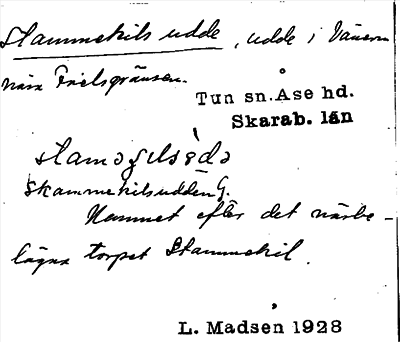 Stammekils udde, udde i Vänern
nära Frielsgränsen.
Tun sn. Åse hd.
Skarab. län
stamǝɕilsᵾdǝ
Skammekilsudden G.
Namnet efter det närbe-
lägna torpet Stammekil.
L. Madsen 1928